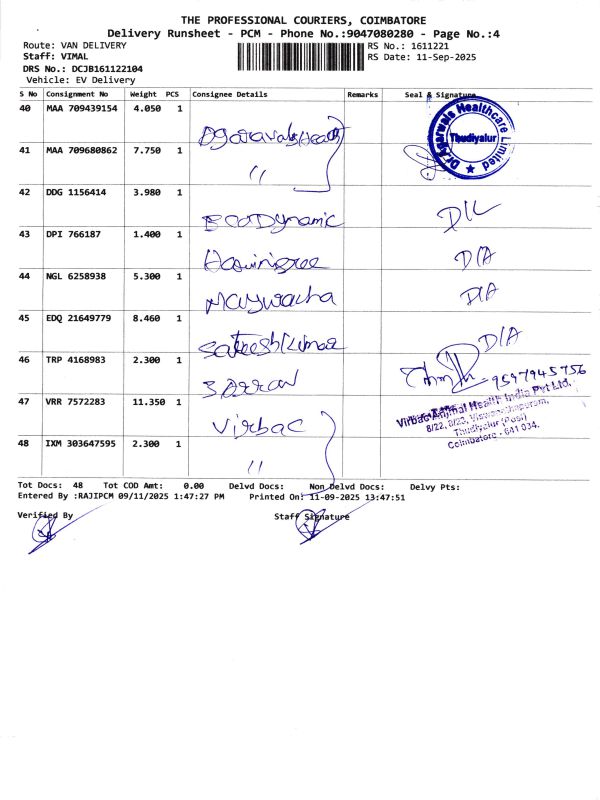 THE PROFESSIONAL COURIERS, COIMBATORE
Delivery Runsheet - PCM - Phone No.:9047080280 - Page No.:4
Route: VAN DELIVERY
Staff: VIMAL
DRS No.: DCJB161122104
Vehicle: EV Delivery
RS No.: 1611221
RS Date: 11-Sep-2025
S No Consignment No Weight PCS Consignee Details Remarks Seal & Signature
40 MAA 709439154 4.050 1
Dr.Agarwals Healthcare Limited
Thudiyalur
41 MAA 709680862 7.750 1 "
42 DDG 1156414 3.980 1 EcoDynamic DIL
43 DPI 766187 1.400 1 D/A
44 NGL 6258938 5.300 1 D/A
45 EDQ 21649779 8.460 1 Sateesh Kumar D/A
46 TRP 4168983 2.300 1 9597945756
47 VRR 7572283 11.350 1 Virbac
Virbac Animal Health India Pvt Ltd.
Thudiyalur (Post)
Coimbatore - 641 034.
48 IXM 303647595 2.300 1 "
Tot Docs: 48 Tot COD Amt: 0.00 Delvd Docs: Non Delvd Docs: Delvy Pts:
Entered By :RAJIPCM 09/11/2025 1:47:27 PM Printed On: 11-09-2025 13:47:51
Verified By Staff Signature